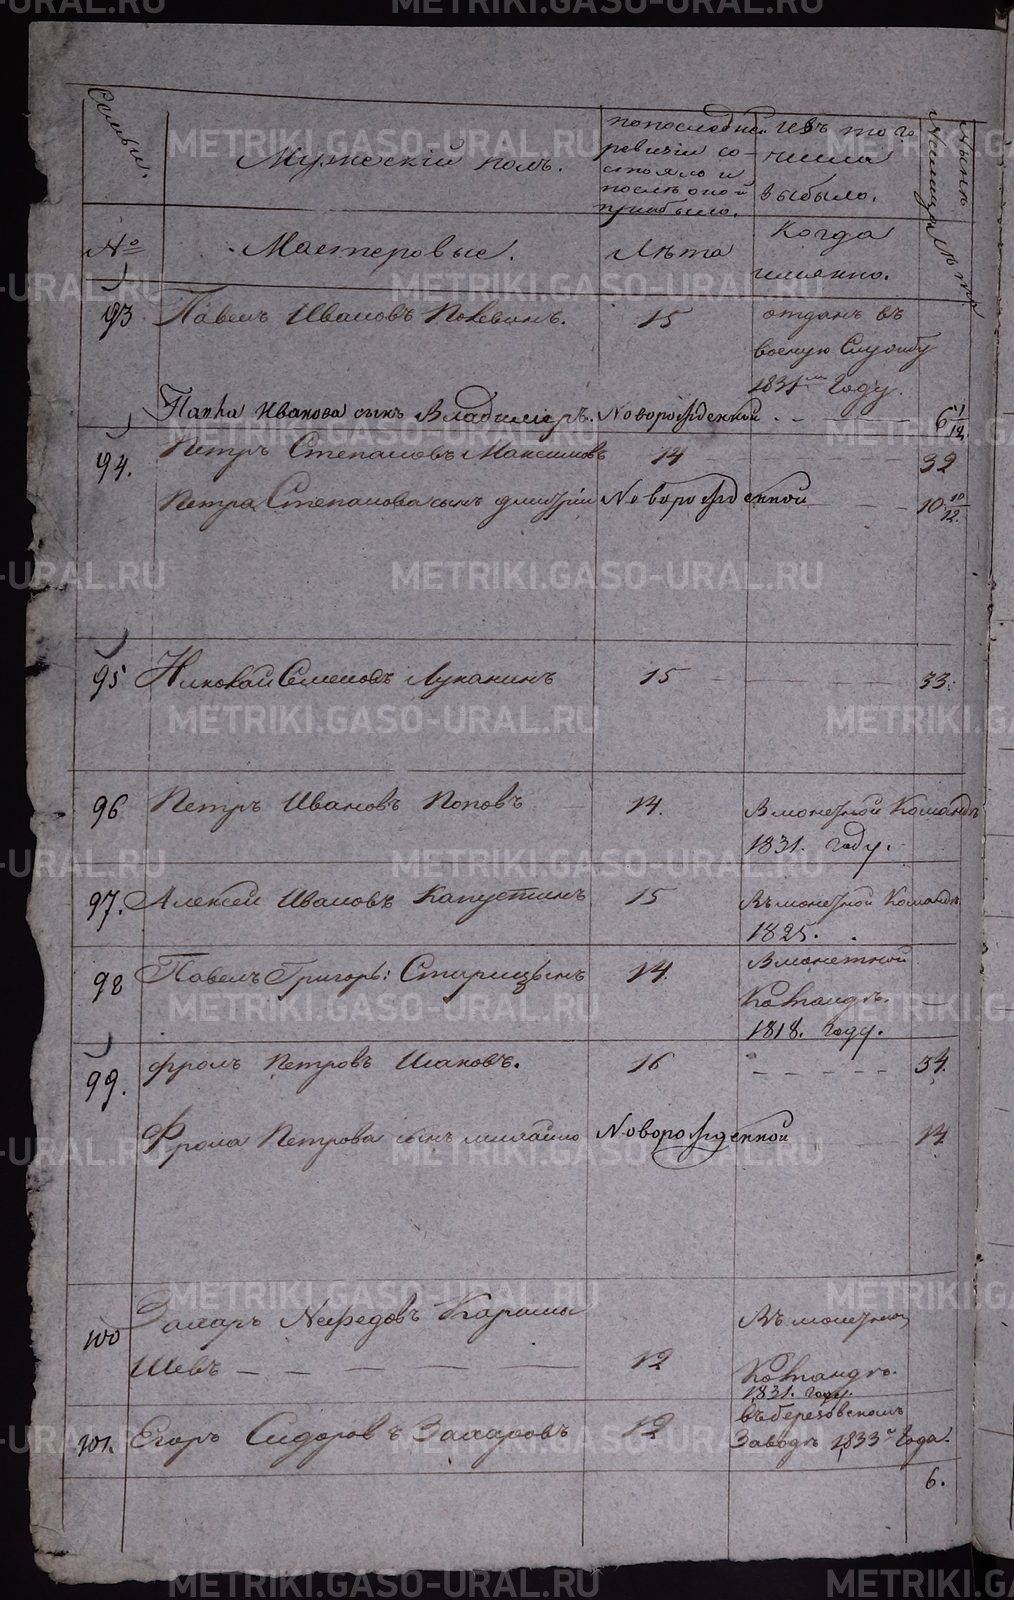 Семьи.
№
Мужеский полъ.
Мастеровые.
по последней
ревизіи со-
стояло и
после оной
прибыло.
Лѣта
изъ того
числа
выбыло.
Когда
именно.
Ныне
на лицо
лѣта
93 Павелъ Ивановъ 15 отданъ въ
военую Службу
1831го Году.
Павла Иванова сынъ Владимиръ. Новорожденной - - - 6 11/12.
94. Петръ Степановъ Максимовъ 14 32
Петра Степанова сынъ Дмитрій Новорожденной - - - 10 10/12.
95 Николай Семеновъ Луканинъ 15 - - 33.
96 Петръ Ивановъ Поповъ 14. Вмонетной Командѣ
1831. году.
97. Алексей Ивановъ Капустинъ 15 Въ монетной Командѣ
1825.
98 Павелъ Григорь: Старицынъ 14. Вмонетной
Командѣ. —
1818. году.
99. Фролъ Петровъ Исаковъ. 16 - - - - - 34.
Фрола Петрова сынъ михайло Новорожденной 14.
100 Захаръ Нефедовъ Карамы
шевъ — — — — — 12 Въ монетной
Командѣ.
1831. году.
101. Егоръ Сидоровъ Захаровъ 12 въ березовскомъ
Заводѣ 1833го Года.
6.
METRIKI.GASO-URAL.RU